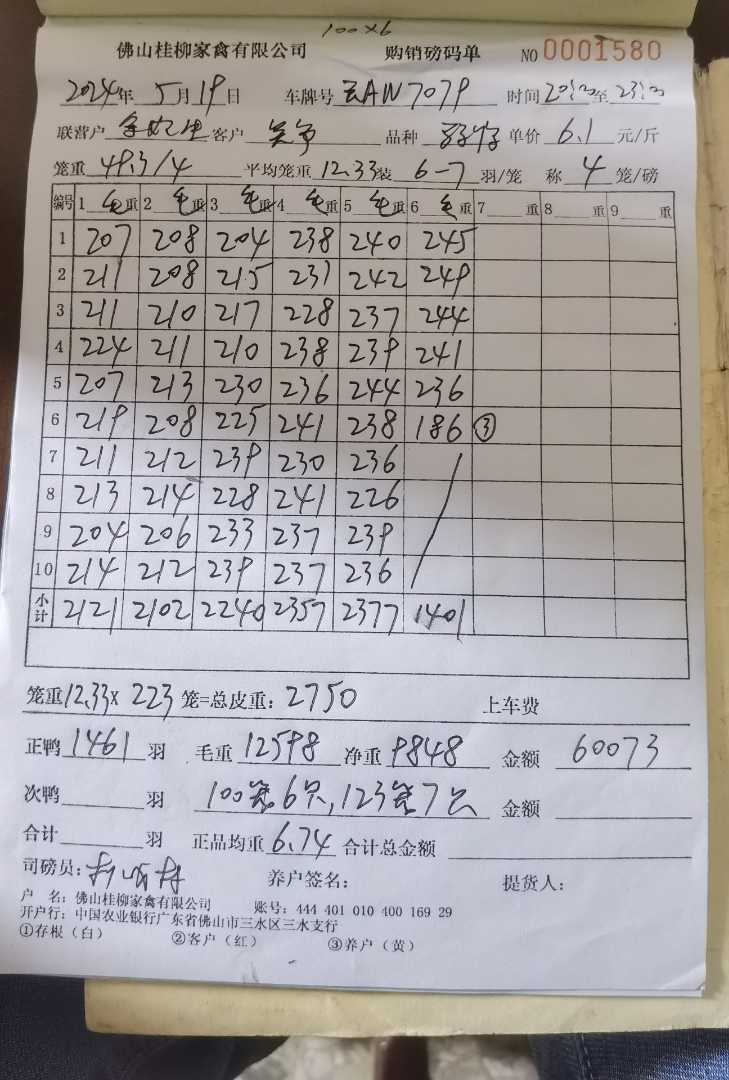 100×6
佛山桂柳家禽有限公司 购销磅码单 NO 0001580
2024年 5月19日 车牌号 云AW7079 时间 20:00至 23:00
联营户 客户 品种 单价 6.1 元/斤
笼重 49.3/4 平均笼重 12.33 装 6-7 羽/笼 称 4 笼/磅
编号 1 毛重 2 毛重 3 毛重 4 毛重 5 毛重 6 毛重 7 重 8 重 9 重
1 207 208 204 238 240 245
2 211 208 215 231 242 249
3 211 210 217 228 237 244
4 224 211 210 238 239 241
5 207 213 230 236 244 236
6 219 208 225 241 238 186 ③
7 211 212 239 230 236
8 213 214 228 241 226
9 204 206 233 237 239
10 214 212 239 237 236
小计 2121 2102 2240 2357 2377 1401
笼重12.33× 223 笼=总皮重: 2750 上车费
正鸭 1461 羽 毛重 12598 净重 9848 金额 60073
次鸭 羽 100笼6只,123笼7只 金额
合计 羽 正品均重 6.74 合计总金额
司磅员: 养户签名: 提货人:
户 名: 佛山桂柳家禽有限公司 账号: 444 401 010 400 169 29
开户行: 中国农业银行广东省佛山市三水区三水支行
①存根(白) ②客户(红) ③养户(黄)